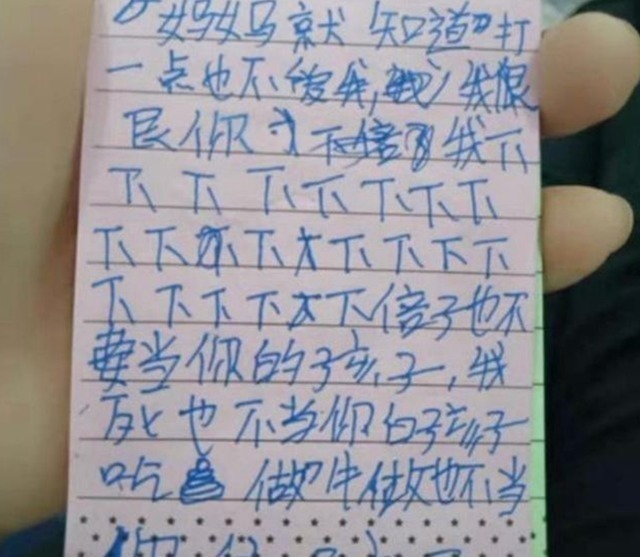 妈妈就知道打
一点也不爱我,我很
你下倍子我下
下下下下下下下
下下下下下下下下
下下下下下倍子也不
要当你的孩子,我
死也不当你的孩子
吃 做牛做也不当